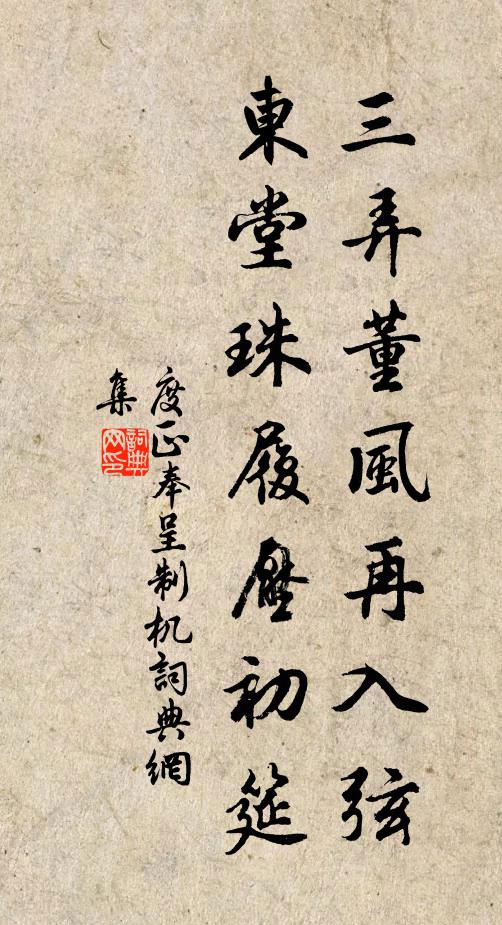 三弄董風再入弦
東堂珠履壓初筵
度正奉呈制机詞典網
集
詞典
网印